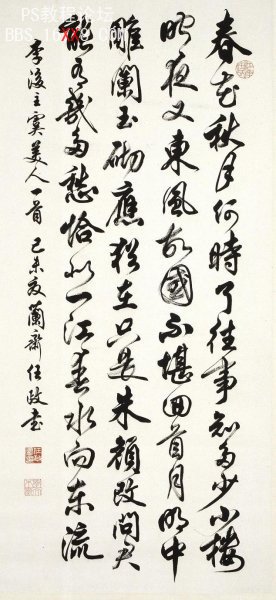 PS教程论坛
BBS.16XX8.COM
春花秋月何時了往事知多少小樓
昨夜又東風故國不堪回首月明中
雕闌玉砌應猶在只是朱顏改問君
能有幾多愁恰似一江春水向東流
李後主虞美人一首 己未夏蘭齋任政書